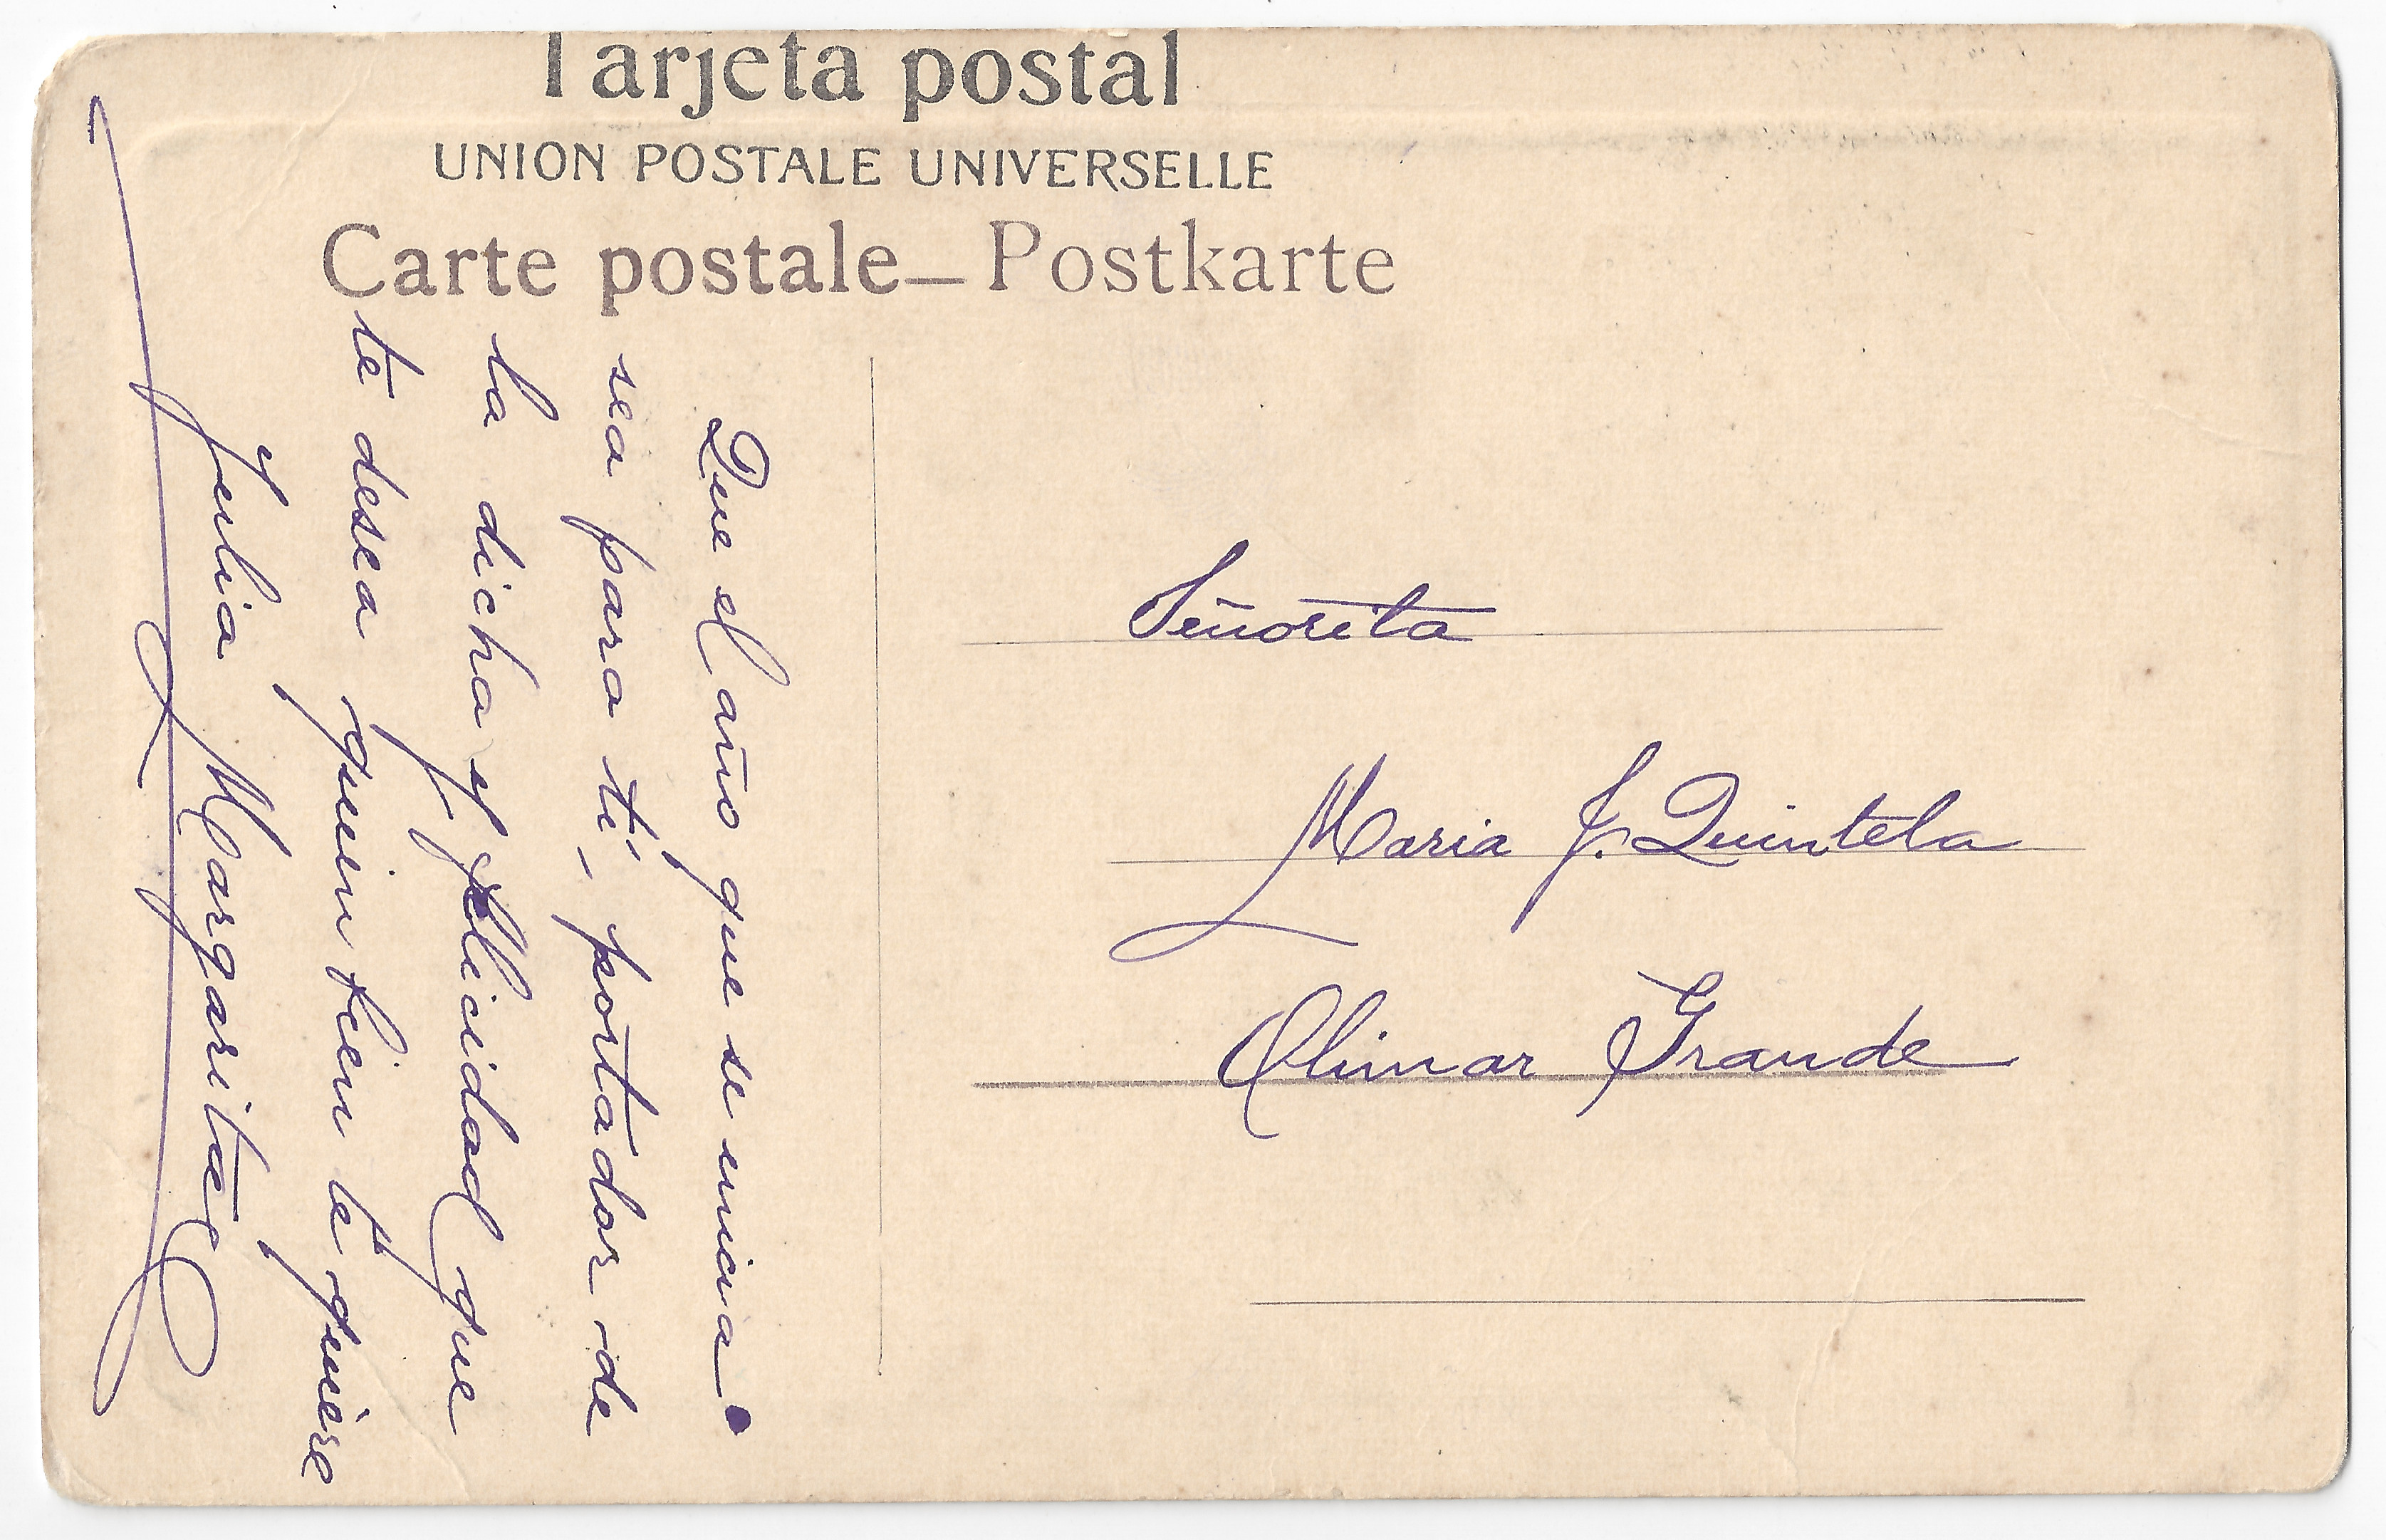 Tarjeta postal
UNION POSTALE UNIVERSELLE
Carte postale – Postkarte
Que el año que se inicia
sea para tí, portador de
la dicha y felicidad que
te desea quien bien te quiere
Julia Margarita
Señorita
Maria J. Quintela
Olimar Grande